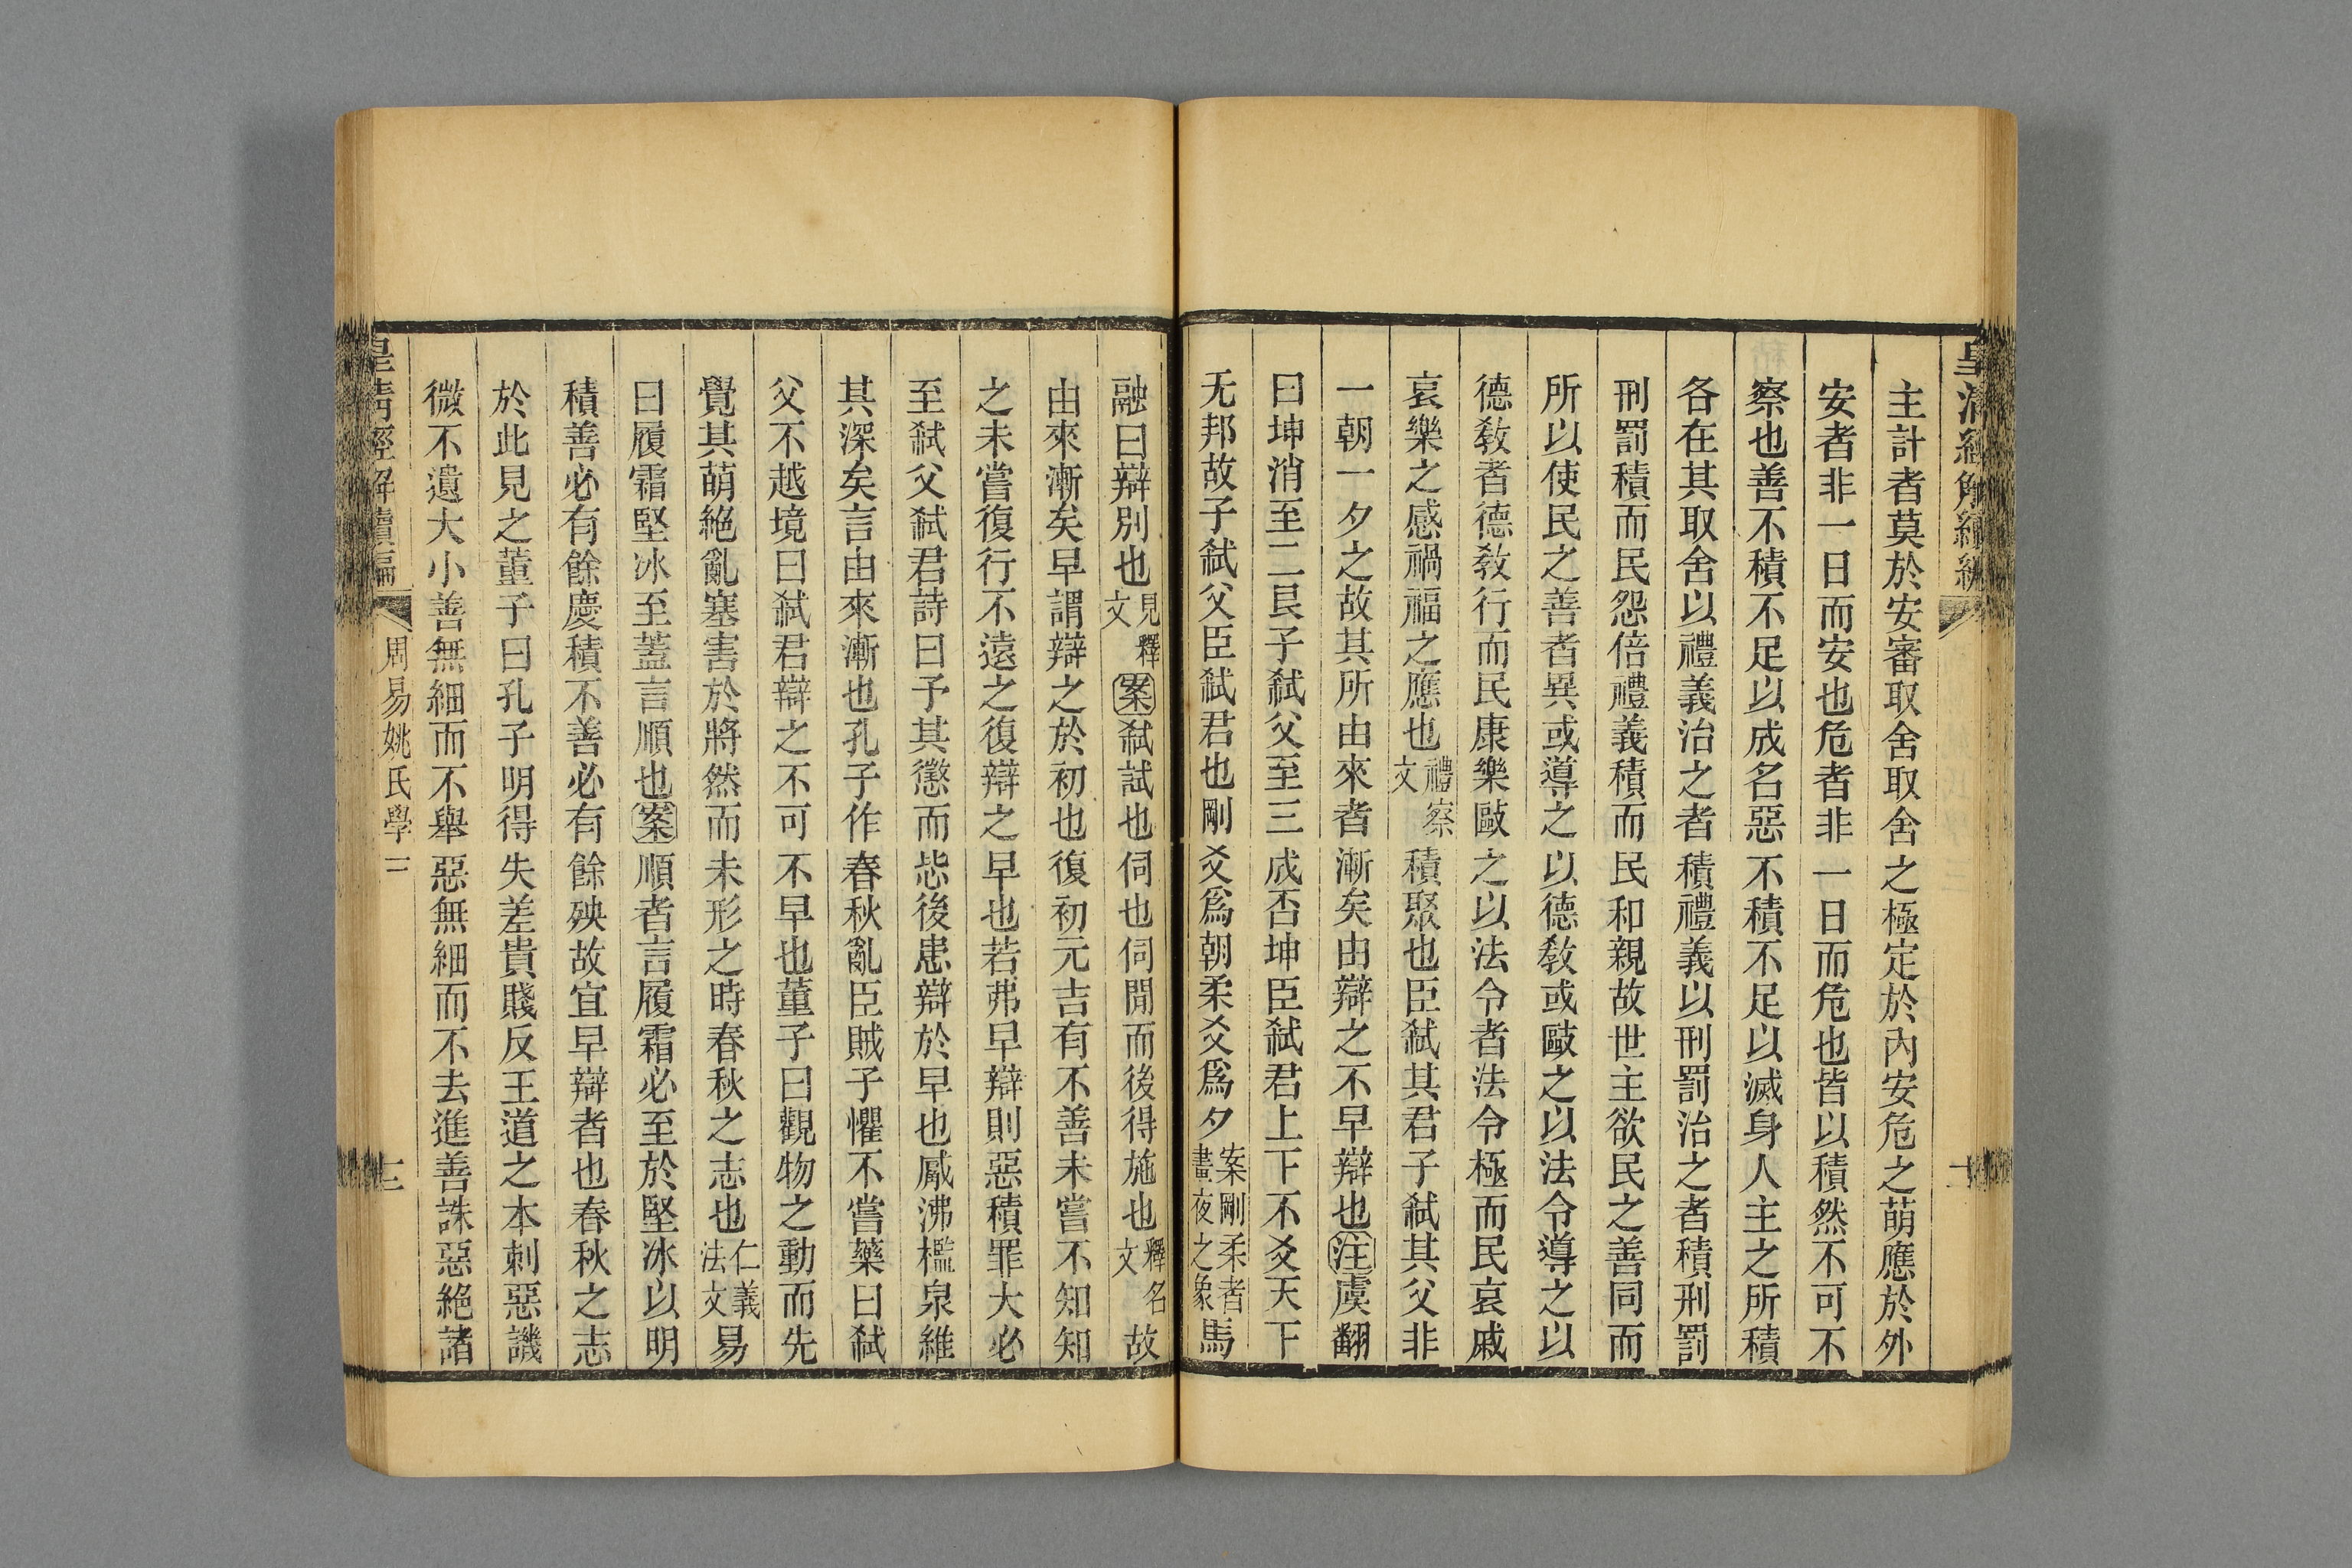 皇清經解續編
主計者莫於安審取舍取舍之極定於內安危之萌應於外
安者非一日而安也危者非一日而危也皆以積然不可不
察也善不積不足以成名惡不積不足以滅身人主之所積
各在其取舍以禮義治之者積禮義以刑罰治之者積刑罰
刑罰積而民怨倍禮義積而民和親故世主欲民之善同而
所以使民之善者異或導之以德敎或歐之以法令導之以
德敎者德敎行而民康樂歐之以法令者法令極而民哀戚
哀樂之感禍福之應也禮察文積聚也臣弑其君子弑其父非
一朝一夕之故其所由來者漸矣由辯之不早辯也注虞翻
曰坤消至二艮子弑父至三成否坤臣弑君上下不交天下
无邦故子弑父臣弑君也剛爻爲朝柔爻爲夕案剛柔者晝夜之象馬
融曰辯別也見釋文案弑試也伺也伺閒而後得施也釋名文故
由來漸矣早謂辯之於初也復初元吉有不善未嘗不知知
之未嘗復行不遠之復辯之早也若弗早辯則惡積罪大必
至弑父弑君詩曰予其懲而毖後患辯於早也觱沸檻泉維
其深矣言由來漸也孔子作春秋亂臣賊子懼不嘗藥曰弑
父不越境曰弑君辯之不可不早也董子曰觀物之動而先
覺其萌絕亂塞害於將然而未形之時春秋之志也仁義法文易
曰履霜堅冰至蓋言順也案順者言履霜必至於堅冰以明
積善必有餘慶積不善必有餘殃故宜早辯者也春秋之志
於此見之董子曰孔子明得失差貴賤反王道之本刺惡譏
微不遺大小善無細而不舉惡無細而不去進善誅惡絕諸
皇清經解續編
周易姚氏學二